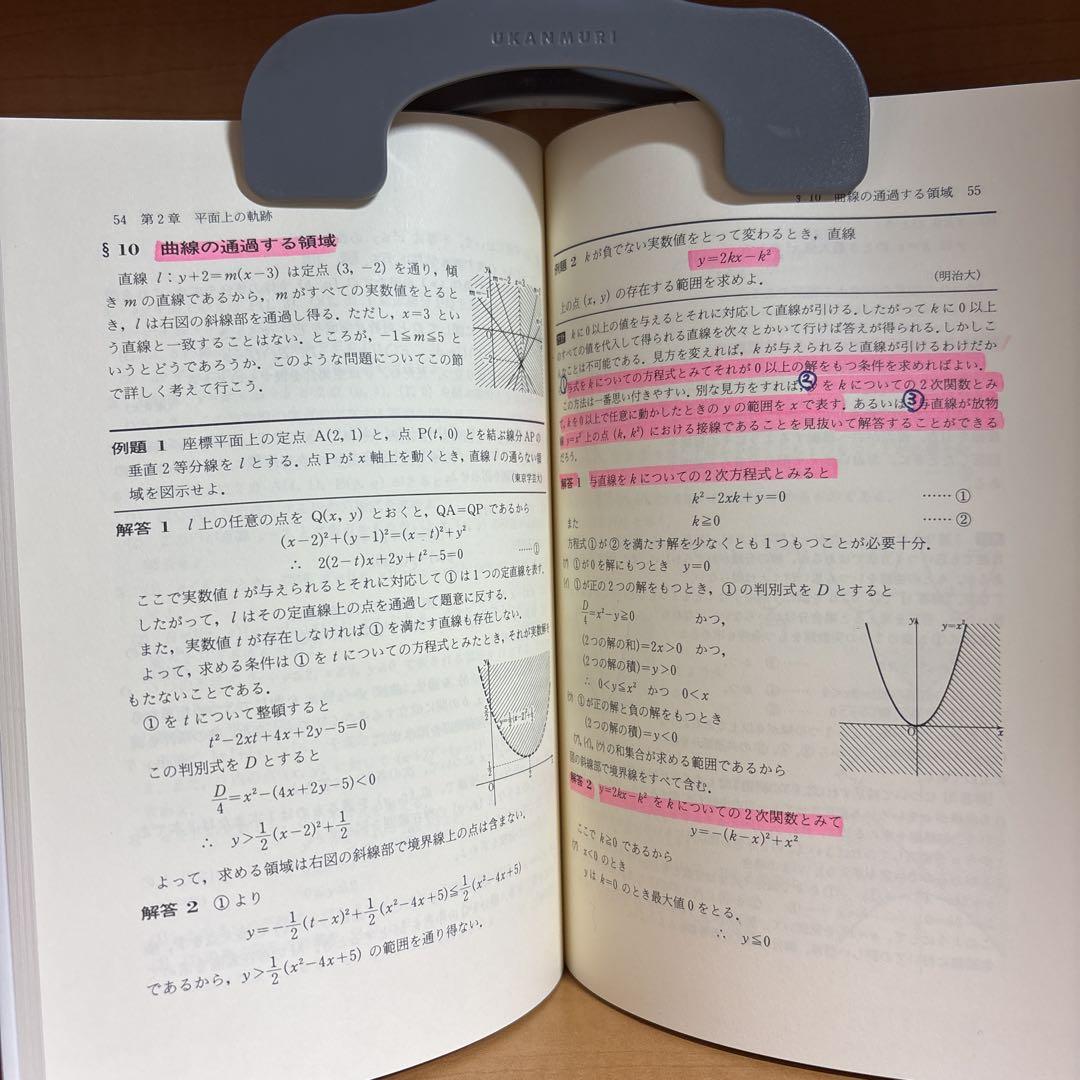 UKANMURI
54 第2章 平面上の軌跡
§10 曲線の通過する領域
直線 l：y+2=m(x−3) は定点 (3, −2) を通り，傾
き m の直線であるから，m がすべての実数値をとると
き，l は右図の斜線部を通過し得る．ただし，x=3 とい
う直線と一致することはない．ところが，−1≦m≦5 と
いうとどうであろうか．このような問題についてこの節
で詳しく考えて行こう．
例題 1 座標平面上の定点 A(2, 1) と，点 P(t, 0) とを結ぶ線分 AP の
垂直2等分線を l とする．点 P が x 軸上を動くとき，直線 l の通らない領
域を図示せよ．
(東京学芸大)
解答 1 l 上の任意の点を Q(x, y) とおくと，QA=QP であるから
(x−2)²+(y−1)²=(x−t)²+y²
∴ 2(2−t)x+2y+t²−5=0 ……①
ここで実数値 t が与えられるとそれに対応して①は1つの定直線を表す．
したがって，l はその定直線上の点を通過して題意に反する．
また，実数値 t が存在しなければ①を満たす直線も存在しない．
よって，求める条件は①を t についての方程式とみたとき，それが実数解を
もたないことである．
①を t について整頓すると
t²−2xt+4x+2y−5=0
この判別式を D とすると
D/4=x²−(4x+2y−5)<0
∴ y>1/2(x−2)²+1/2
よって，求める領域は右図の斜線部で境界線上の点は含まない．
解答 2 ①より
y=−1/2(t−x)²+1/2(x²−4x+5)≦1/2(x²−4x+5)
であるから，y>1/2(x²−4x+5) の範囲を通り得ない．
§10 曲線の通過する領域 55
例題 2 k が負でない実数値をとって変わるとき，直線
y=2kx−k²
上の点 (x, y) の存在する範囲を求めよ．
(明治大)
k に0以上の値を与えるとそれに対応して直線が引ける．したがって k に0以上
のすべての値を代入して得られる直線を次々とかいて行けば答えが得られる．しかしこ
んなことは不可能である．見方を変えれば，k が与えられると直線が引けるわけだか
① 与式を k についての方程式とみてそれが0以上の解をもつ条件を求めればよい．
この方法は一番思い付きやすい．別な見方をすれば，② y を k についての2次関数とみ
て，k を0以上で任意に動かしたときの y の範囲を x で表す．あるいは③与直線が放物
線 y=x² 上の点 (k, k²) における接線であることを見抜いて解答することができる
だろう．
解答 1 与直線を k についての2次方程式とみると
k²−2xk+y=0 ……①
また k≧0 ……②
方程式①が②を満たす解を少なくとも1つもつことが必要十分．
(ア) ①が0を解にもつとき y=0
(イ) ①が正の2つの解をもつとき，①の判別式を D とすると
D/4=x²−y≧0 かつ，
(2つの解の和)=2x>0 かつ，
(2つの解の積)=y>0
∴ 0<y≦x² かつ 0<x
(ウ) ①が正の解と負の解をもつとき
(2つの解の積)=y<0
(ア), (イ), (ウ) の和集合が求める範囲であるから
図の斜線部で境界線をすべて含む．
y y=x²
O x
解答 2 y=2kx−k² を k についての2次関数とみて
y=−(k−x)²+x²
ここで k≧0 であるから
(ア) x<0 のとき
y は k=0 のとき最大値0をとる．
∴ y≦0